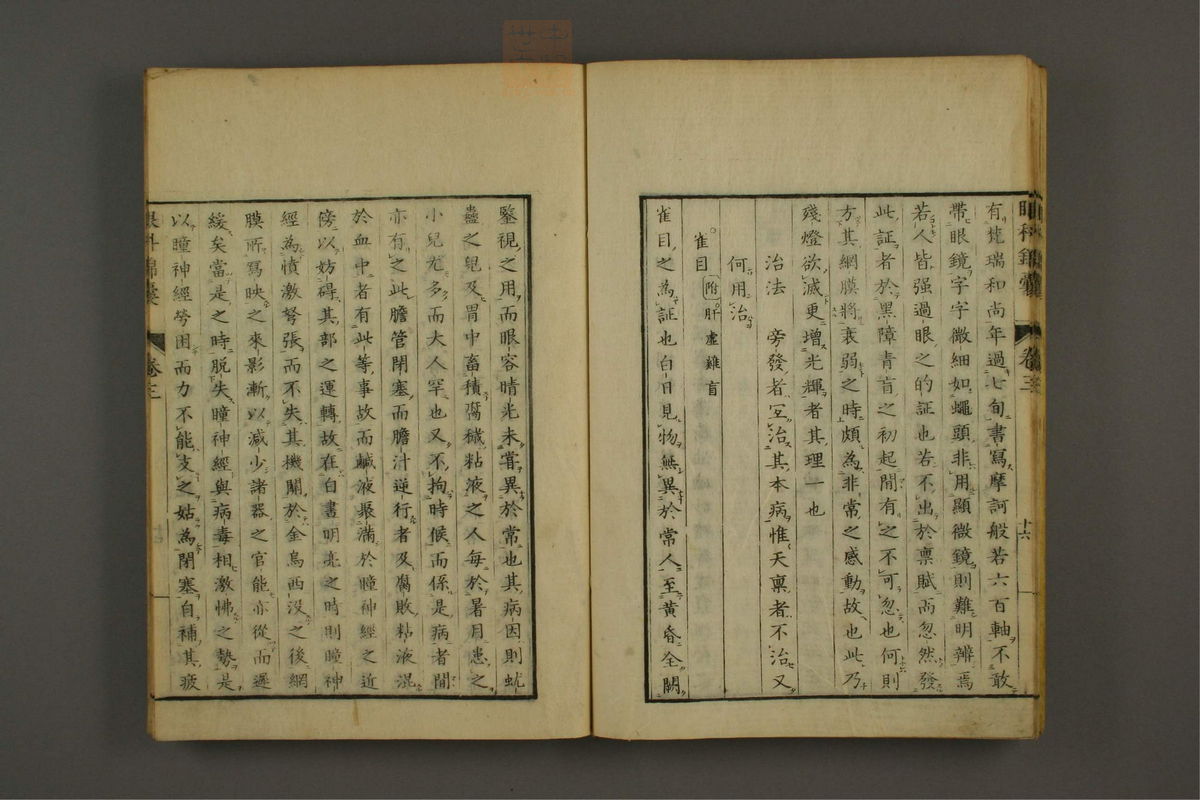 眼科錦囊 卷三 十六
有梵瑞和尚年過七旬書寫摩訶般若六百軸不敢
帶眼鏡字字微細如蠅頭非用顯微鏡則難明辨焉
若人皆强過眼之的証也若不出於禀賦而忽然發
此証者於黑障青盲之初起間有之不可忽也何則
方其網膜將衰弱之時頗為非常之感動故也此乃
殘燈欲滅更增光輝者其理一也
治法 旁發者宜治其本病惟天禀者不治又
何用治
雀目 附肝虛雞盲
雀目之為証也白日見物無異於常人至黃昏全闕
鑒視之用而眼容晴光未嘗異於常也其病因則蚘
蟲之兒及胃中畜積腐穢粘液之人每於暑月患之
小兒尤多而大人罕也又不拘時候而係是病者間
亦有之此膽管閉塞而膽汁逆行者及腐敗粘液混
於血中者有此等事故而鹹液聚滿於瞳神經之近
傍以妨碍其部之運轉故在白晝明亮之時則瞳神
經為憤激努張而不失其機關於金烏西沒之後網
膜所寫映之來影漸以減少諸器之官能亦從而遲
緩矣當是之時脫失瞳神經與病毒相激怫之勢是
以瞳神經勞困而力不能支之姑為閉塞自補其疲
眼科錦囊 卷三